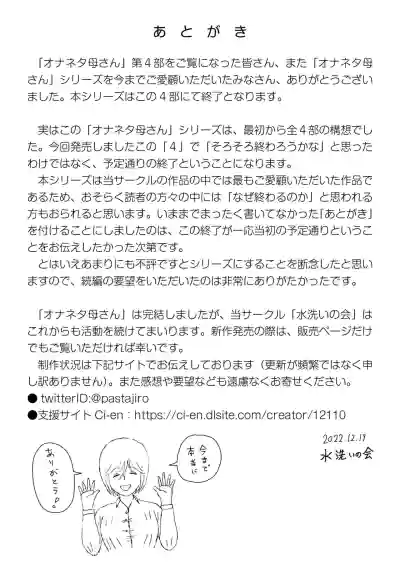 あとがき
「オナネタ母さん」第4部をご覧になった皆さん、また「オナネタ母
さん」シリーズを今までご愛顧いただいたみなさん、ありがとうござい
ました。本シリーズはこの4部にて終了となります。
実はこの「オナネタ母さん」シリーズは、最初から全4部の構想でし
た。今回発売しましたこの「4」で「そろそろ終わろうかな」と思った
わけではなく、予定通りの終了ということになります。
本シリーズは当サークルの作品の中では最もご愛顧いただいた作品で
あるため、おそらく読者の方々の中には「なぜ終わるのか」と思われる
方もおられると思います。いままでまったく書いてなかった「あとがき」
を付けることにしましたのは、この終了が一応当初の予定通りというこ
とをお伝えしたかった次第です。
とはいえあまりにも不評ですとシリーズにすることを断念したと思い
ますので、続編の要望をいただいたのは非常にありがたかったです。
「オナネタ母さん」は完結しましたが、当サークル「水洗いの会」は
これからも活動を続けてまいります。新作発売の際は、販売ページだけ
でもご覧いただければ幸いです。
制作状況は下記サイトでお伝えしております（更新が頻繁ではなく申
し訳ありません）。また感想や要望なども遠慮なくお寄せください。
●twitterID:@pastajiro
●支援サイトCi-en：https://ci-en.dlsite.com/creator/12110
2022.12.19
水洗いの会
今まで
本当に
ありがとう。